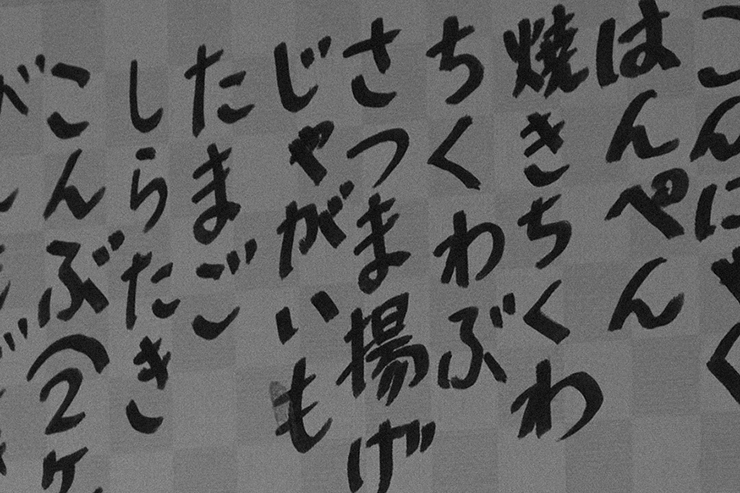 こんにゃく
はんぺん
焼きちくわ
ちくわぶ
さつま揚げ
じゃがいも
たまご
しらたき
こんぶ(2ケ